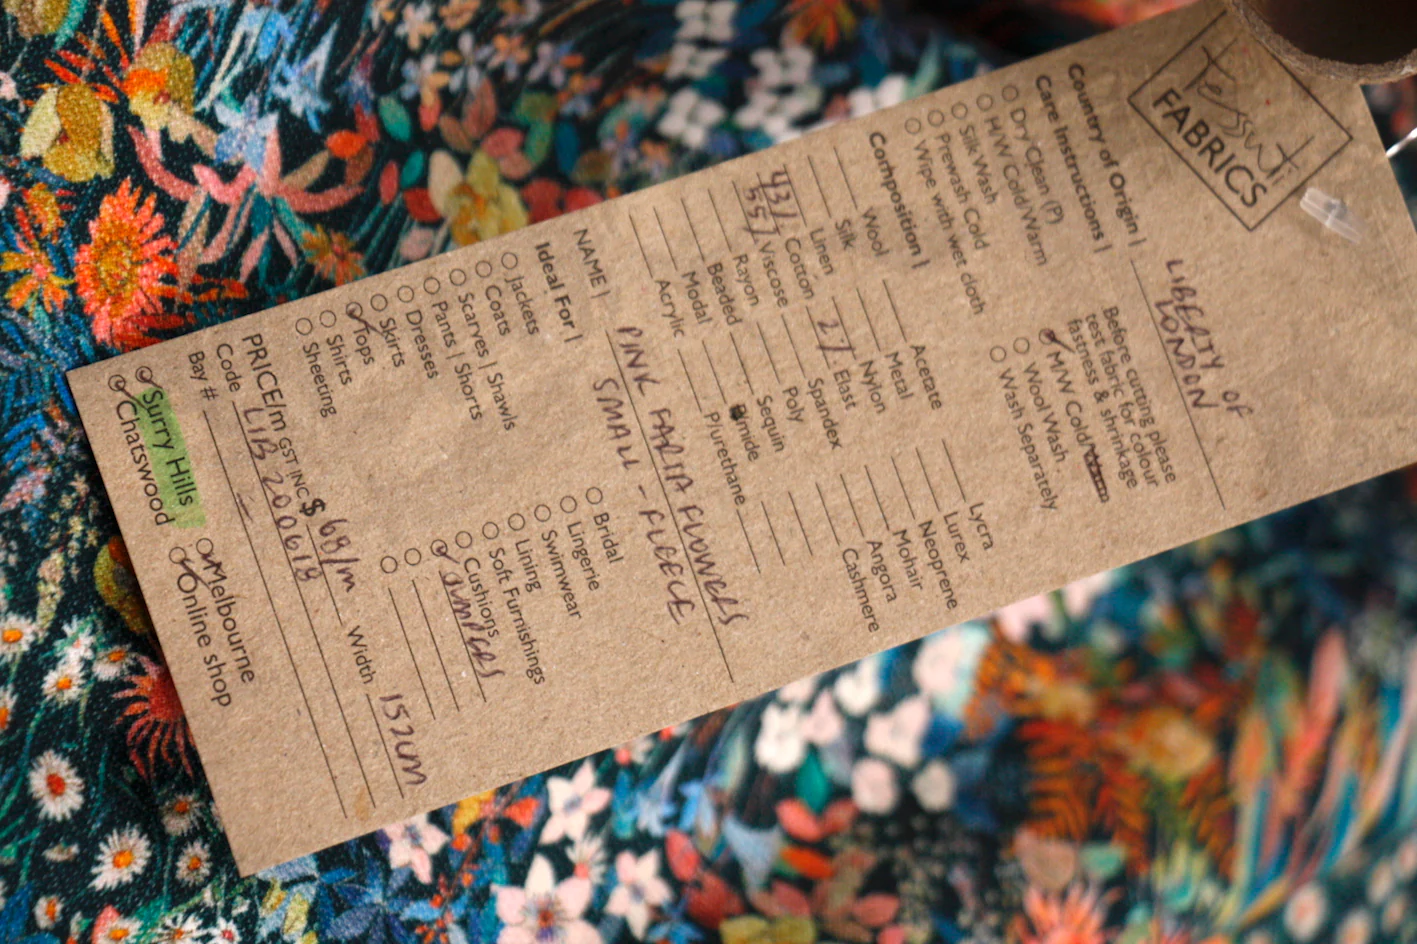 Tessuti
FABRICS
Country of Origin | LIBERTY OF
LONDON
Care Instructions |
Dry Clean (P)
H/W Cold/Warm
Silk Wash
Prewash Cold
Wipe with wet cloth
Before cutting please
test fabric for colour
fastness & shrinkage
M/W Cold/Warm
Wool Wash
Wash Separately
Composition |
Wool
Silk
Linen
43% Cotton
55% Viscose
Rayon
Beaded
Modal
Acrylic
Acetate
Metal
Nylon
2% Elast
Spandex
Poly
Sequin
Plurethane
Lycra
Lurex
Neoprene
Mohair
Angora
Cashmere
NAME | PINK FARIA FLOWERS
SMALL - FLEECE
Ideal For |
Jackets
Coats
Scarves | Shawls
Pants | Shorts
Dresses
Skirts
Tops
Shirts
Sheeting
Bridal
Lingerie
Swimwear
Lining
Soft Furnishings
Cushions
JUMPERS
PRICE/m GST INC $ 69/m Width 152cm
Code LIB 200618
Bay # -
Surry Hills Melbourne
Chatswood Online shop